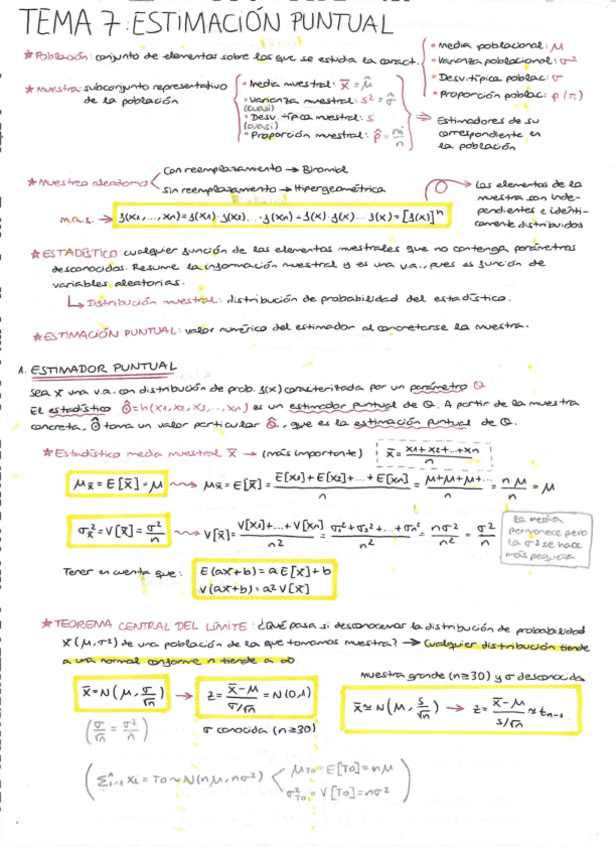 TEMA 7: ESTIMACIÓN PUNTUAL
★ Población: conjunto de elementos sobre los que se estudia la caract.
• Media poblacional: μ
• Varianza poblacional: σ²
• Desv. típica poblac: σ
• Proporción poblac: p (π)
★ Muestra: subconjunto representativo
de la población
• Media muestral: x̄ = μ̂
• Varianza muestral: s² = σ̂
(cuasi)
• Desv. típica muestral: s
(cuasi)
• Proporción muestral: p̂ = ni/n
⇒ Estimadores de su
correspondiente en
la población
★ Muestreo aleatorio
Con reemplazamiento → Binomial
Sin reemplazamiento → Hipergeométrica
→ Los elementos de la
muestra son inde-
pendientes e idénti-
camente distribuidos
m.a.s. → f(x1, ..., xn) = f(x1)·f(x2). ... ·f(xn) = f(x)·f(x)... f(x) = [f(x)]ⁿ
★ ESTADÍSTICO: cualquier función de los elementos muestrales que no contenga parámetros
desconocidos. Resume la información muestral y es una v.a., pues es función de
variables aleatorias.
↳ Distribución muestral: distribución de probabilidad del estadístico.
★ ESTIMACIÓN PUNTUAL: valor numérico del estimador al concretarse la muestra.
1. ESTIMADOR PUNTUAL
Sea x una v.a. con distribución de prob. f(x) caracterizada por un parámetro θ
El estadístico θ̂ = h(x1, x2, x3, ..., xn) es un estimador puntual de θ. A partir de la muestra
concreta, θ̂ toma un valor particular θ̂, que es la estimación puntual de θ.
★ Estadístico media muestral x̄ → (más importante) x̄ = (x1+x2+...+xn)/n
μx̄ = E[x̄] = μ ⇝ μx̄ = E[x̄] = (E[x1]+E[x2]+...+E[xn])/n = (μ+μ+μ+...)/n = n·μ/n = μ
σ²x̄ = V[x̄] = σ²/n ⇝ V[x̄] = (V[x1]+...+V[xn])/n² = (σ1²+σ2²+...+σn²)/n² = nσ²/n² = σ²/n
La media
permanece pero
la σ² se hace
más pequeña
Tener en cuenta que:
E(ax+b) = aE[x]+b
V(ax+b) = a²V[x]
★ TEOREMA CENTRAL DEL LÍMITE: ¿Qué pasa si desconocemos la distribución de probabilidad
x(μ,σ²) de una población de la que tomamos muestra? → Cualquier distribución tiende
a una normal conforme n tiende a ∞
muestra grande (n≥30) y σ desconocida
x̄ = N(μ, σ/√n) → z = (x̄-μ)/(σ/√n) = N(0,1)
x̄ ≈ N(μ, s/√n) → z = (x̄-μ)/(s/√n) ≈ tn-1
(σ/√n = σ²/n)
σ conocida (n≥30)
(Σⁿi=1 xi = To ~ N(nμ, nσ²)
μTo = E[To] = nμ
σ²To = V[To] = nσ²)